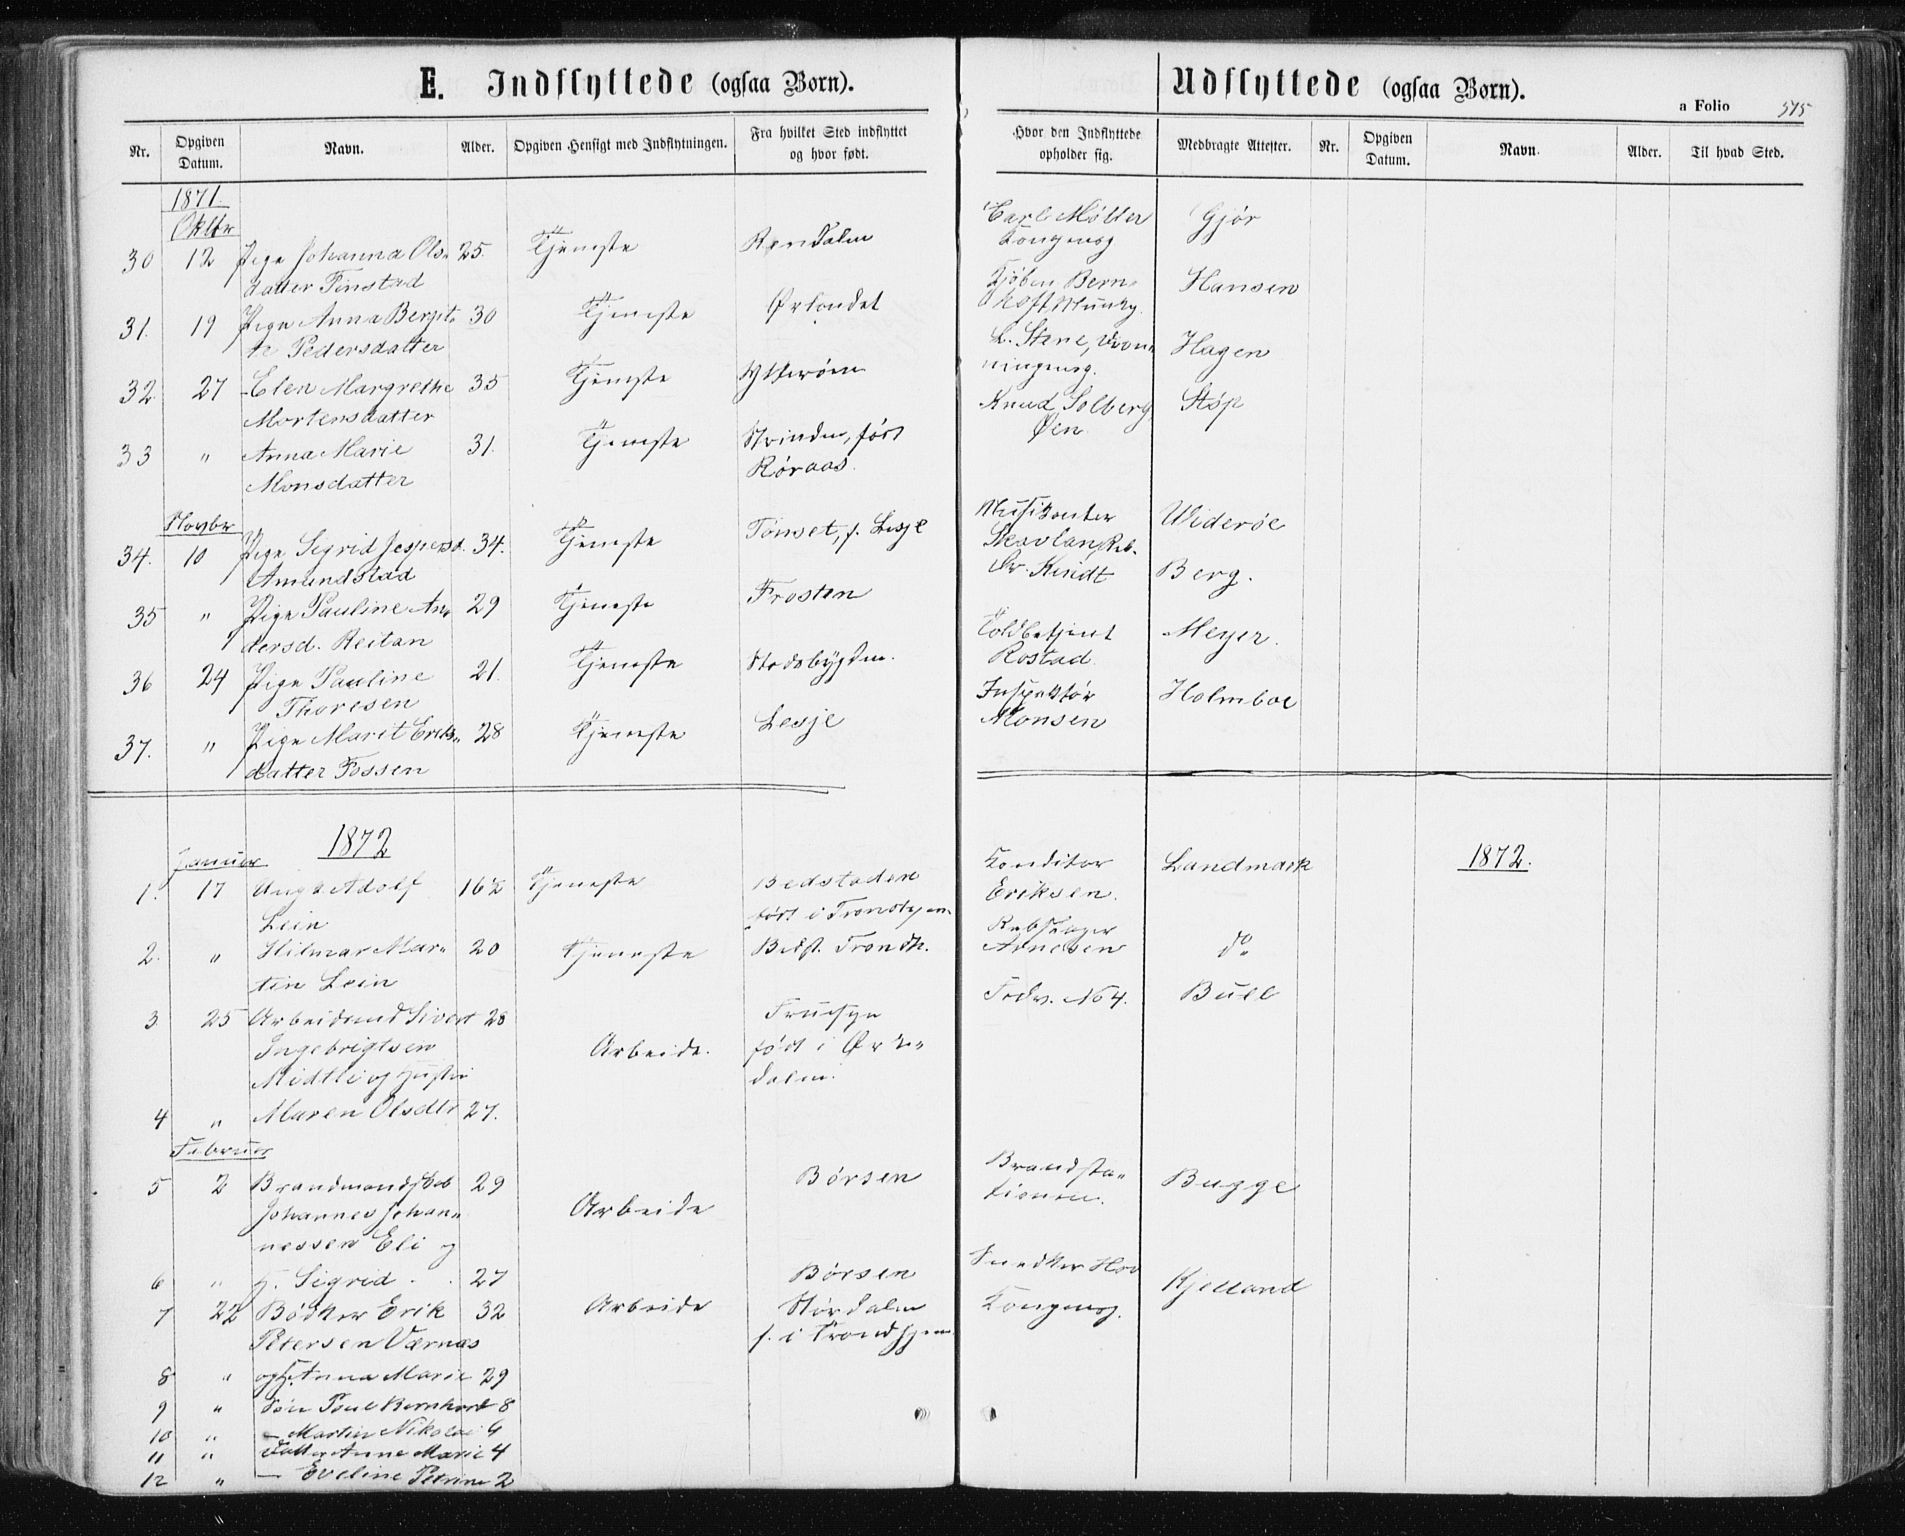 E. Indflyttede (ogsaa Børn).
Nr.
Opgiven Datum.
Navn.
Alder.
Opgiven Hensigt med Indflytningen.
Fra hvilket Sted indflyttet
og hvor født.
1871
Oktbr
30 12 Pige Johanna Ols- 25. Tjeneste Rendalen
datter Finstad
31. 19 Pige Anna Berjit- 30 Tjeneste Ørlandet
te Pedersdatter
32 27 Elen Margrethe 35 Tjeneste Ytterøen
Mortensdatter
33 " Anna Marie 31. Tjeneste Strinden, født
Monsdatter Røraas.
Novbr
34. 10 Pige Sigrid Jespersd. 34. Tjeneste Tønset, f. Lesje
Amundstad
35 " Pige Pauline An- 29 Tjeneste Frosten
dersd. Reitan
36 24 Pige Pauline 21. Tjeneste Stadsbygden.
Thoresen
37. " Pige Marit Eriks- 28 Tjeneste Lesje
datter Fossen
1872
Januar
1. 17 Adolf 16½ Tjeneste Bedstaden
Lein født i Trondhjem
2. " Hilmar Mar- 20 Tjeneste Bedst. Trondh.
tin Lein
3 25 Arbeidsmd Sivert 28
Ingebrigtsen Arbeide. født i Ørke-
Midtli og Hustru dalen.
4 " Maren Olsdtr 27.
Februar
5 2 29 Børsen
Johannes Johan- Arbeide
nessen Eli og
6 " H. Sigrid 27 Børsen
7 22 Bødker Erik 32 Arbeide Størdalen
Petersen Værnæs f. i Trondhjem
8 " og H. Anna Marie 29
9 " Søn Poul Bernhard 8
10 " — Martin Nikolai 6
11 " Datter Anne Marie 4
12 " — Eveline Petrine 2
Udflyttede (ogsaa Børn).
a Folio 575
Hvor den Indflyttede
opholder sig.
Medbragte Attester.
Nr.
Opgiven Datum.
Navn.
Alder.
Til hvad Sted.
Carl Møller Gjør
Kongensg
Kjøbm Bern- Hansen
hoft Munkg.
L. Stene, Dron- Hagen
ningensg.
Knud Solberg Støp
Øen.
Musikanter Widerøe
Skavlan, Reb.
Kindt Berg.
Toldbetjent Meyer.
Rostad.
Inspektør Holmboe
Monsen
1872.
Konditor Landmark
Eriksen.
Rebslager
Arnesen do
No 4. Bull
Brandsta- Bugge
tionen.
Snedker Hov Kjelland
Kongensg.